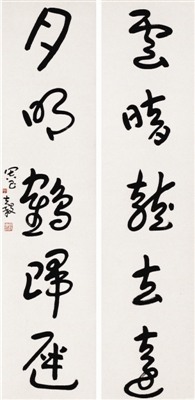 雲晴龍去遠
月明鶴歸遲